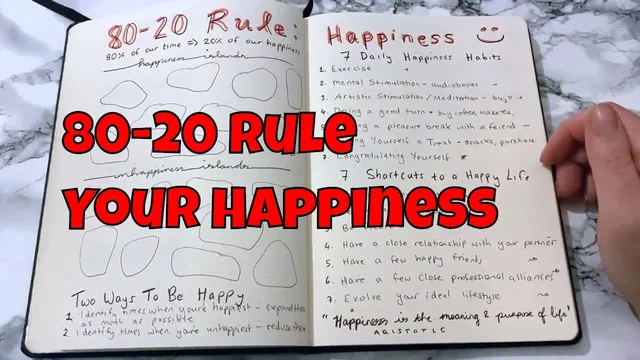 80-20 Rule:
80% of our time => 20% of our happiness
happiness islands
unhappiness islands
Two Ways To Be Happy
1. Identify times when you're happiest - expand them
as much as possible
2. Identify times when you're unhappiest - reduce them
Happiness
7 Daily Happiness Habits
1. Exercise
2. Mental Stimulation - audiobooks
3. Artistic Stimulation/Meditation - bujo
4. Doing a good turn - buy coffee, make tea,
a pleasure break with a friend
Yourself a Treat - snacks, purchase
7. Congratulating Yourself
7 Shortcuts to a Happy Life
4. Have a close relationship with your partner
5. Have a few happy friends
6. Have a few close professional alliances
7. Evolve your ideal lifestyle
"Happiness is the meaning & purpose of life"
ARISTOTLE
80-20 Rule
Your Happiness